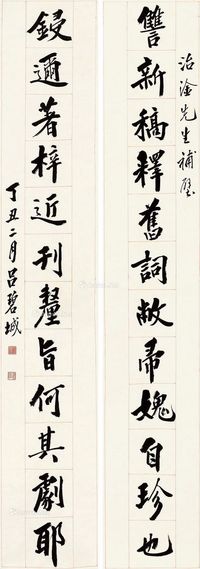 治淦先生補壁
讐新稿釋舊詞敝帚媿自珍也
鋟邇著梓近刊釐旨何其劇耶
丁丑二月呂碧城